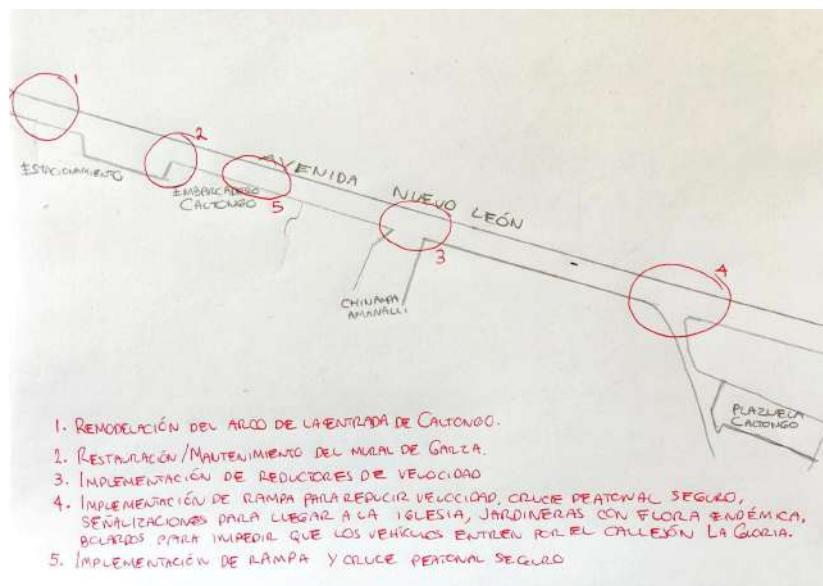 1
2
ESTACIONAMIENTO
EMBARCADERO
CALTONGO
5
AVENIDA NUEVO LEÓN
3
4
CHINAMPA
AMANALLI
PLAZUELA
CALTONGO
1. REMODELACIÓN DEL ARCO DE LA ENTRADA DE CALTONGO.
2. RESTAURACIÓN/MANTENIMIENTO DEL MURAL DE GARZA.
3. IMPLEMENTACIÓN DE REDUCTORES DE VELOCIDAD
4. IMPLEMENTACIÓN DE RAMPA PARA REDUCIR VELOCIDAD, CRUCE PEATONAL SEGURO,
SEÑALIZACIONES PARA LLEGAR A LA IGLESIA, JARDINERAS CON FLORA ENDÉMICA,
BOLARDOS PARA IMPEDIR QUE LOS VEHÍCULOS ENTREN POR EL CALLEJÓN LA GLORIA.
5. IMPLEMENTACIÓN DE RAMPA Y CRUCE PEATONAL SEGURO